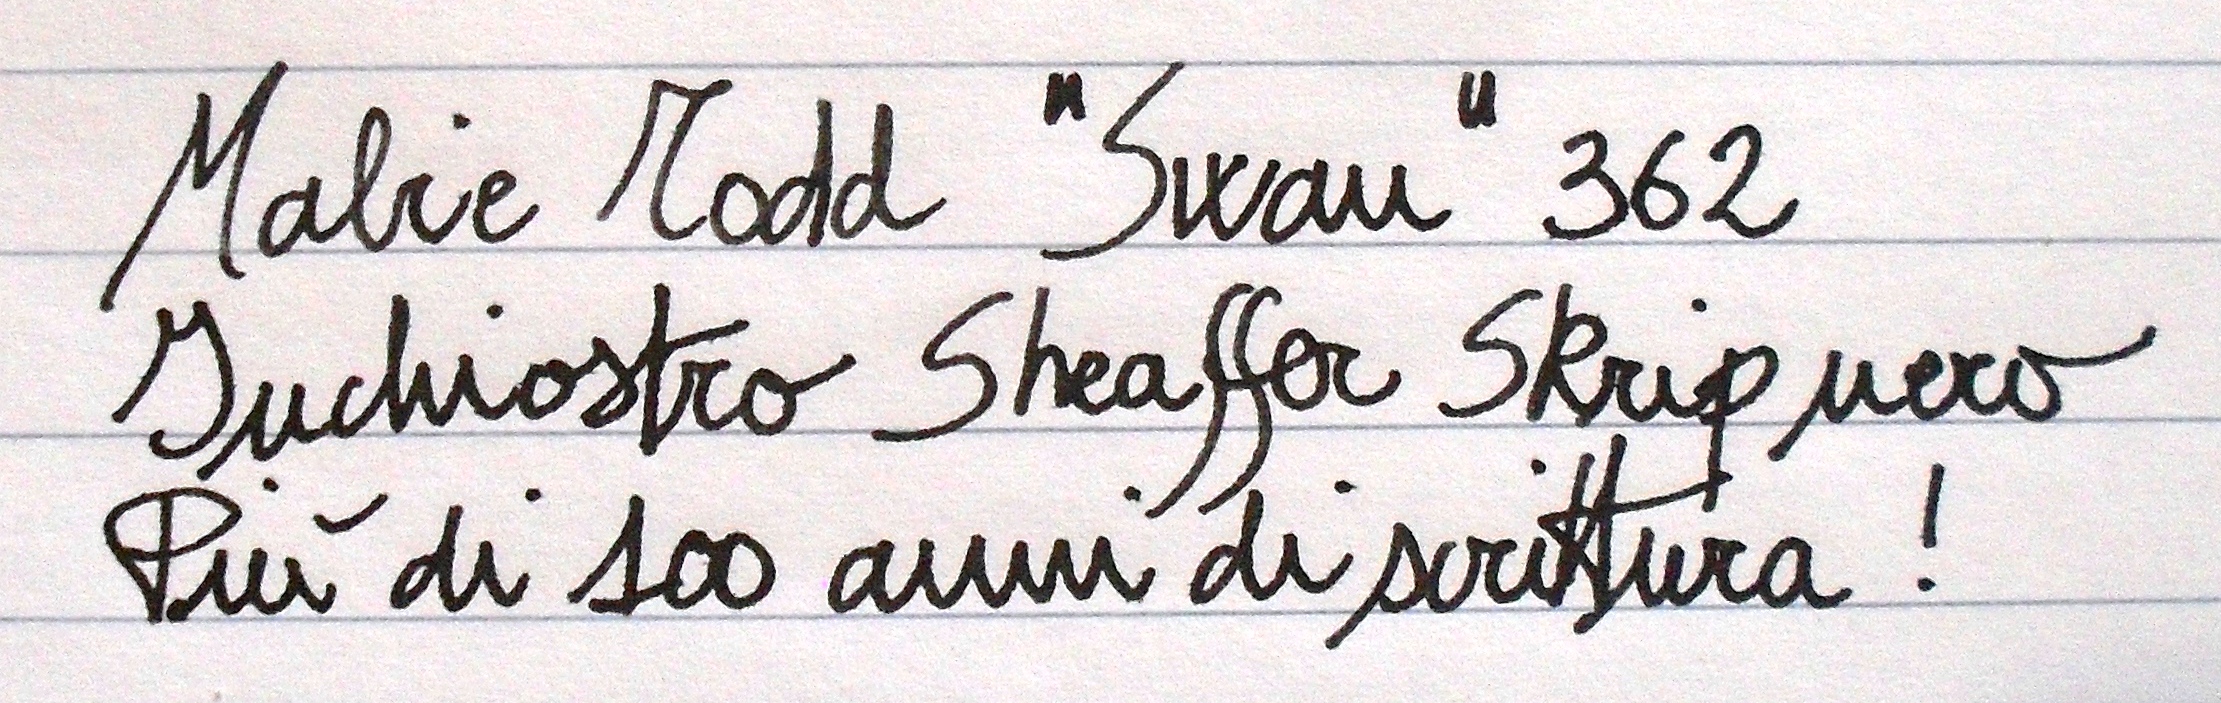 Mabie Todd "Swan" 362
Inchiostro Sheaffer Skrip nero
Più di 100 anni di scrittura!